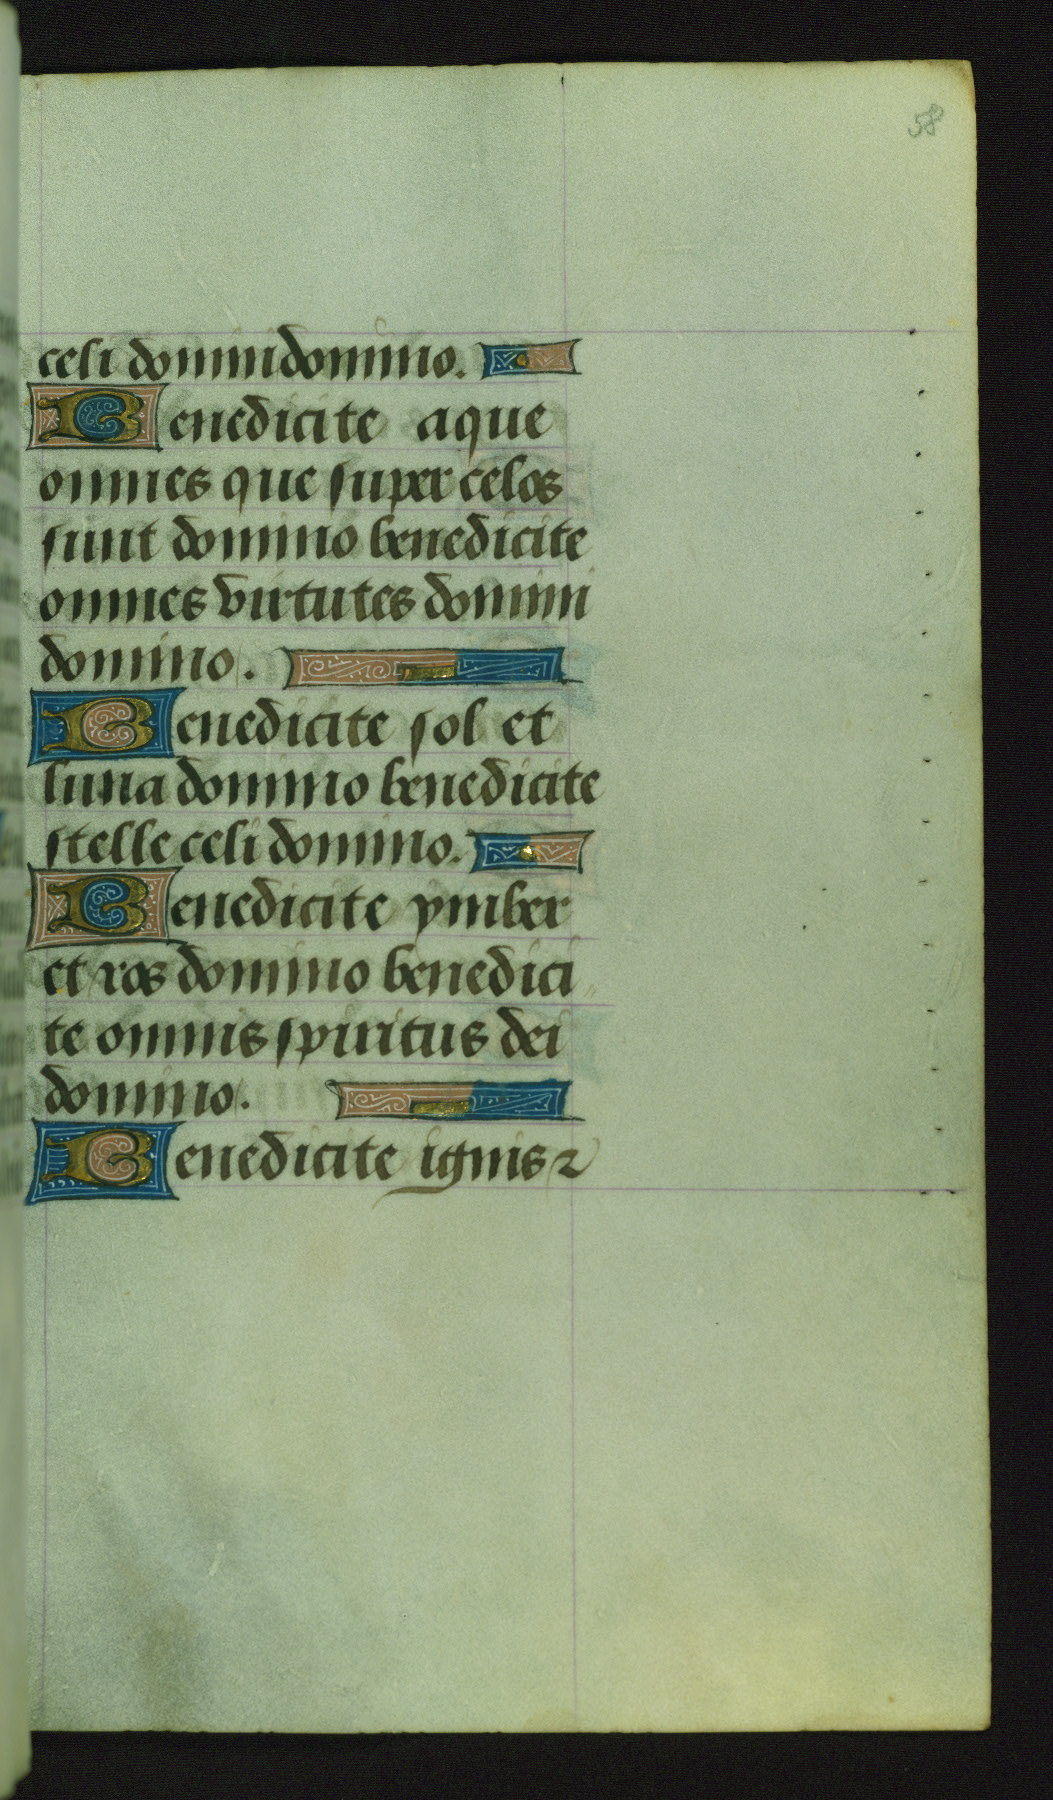 58
celi domini domino.
Benedicite aque
omnes que super celos
sunt domino benedicite
omnes virtutes domini
domino.
Benedicite sol et
luna domino benedicite
stelle celi domino.
Benedicite ymber
et ros domino benedici
te omnis spiritus dei
domino.
Benedicite ignis ⁊